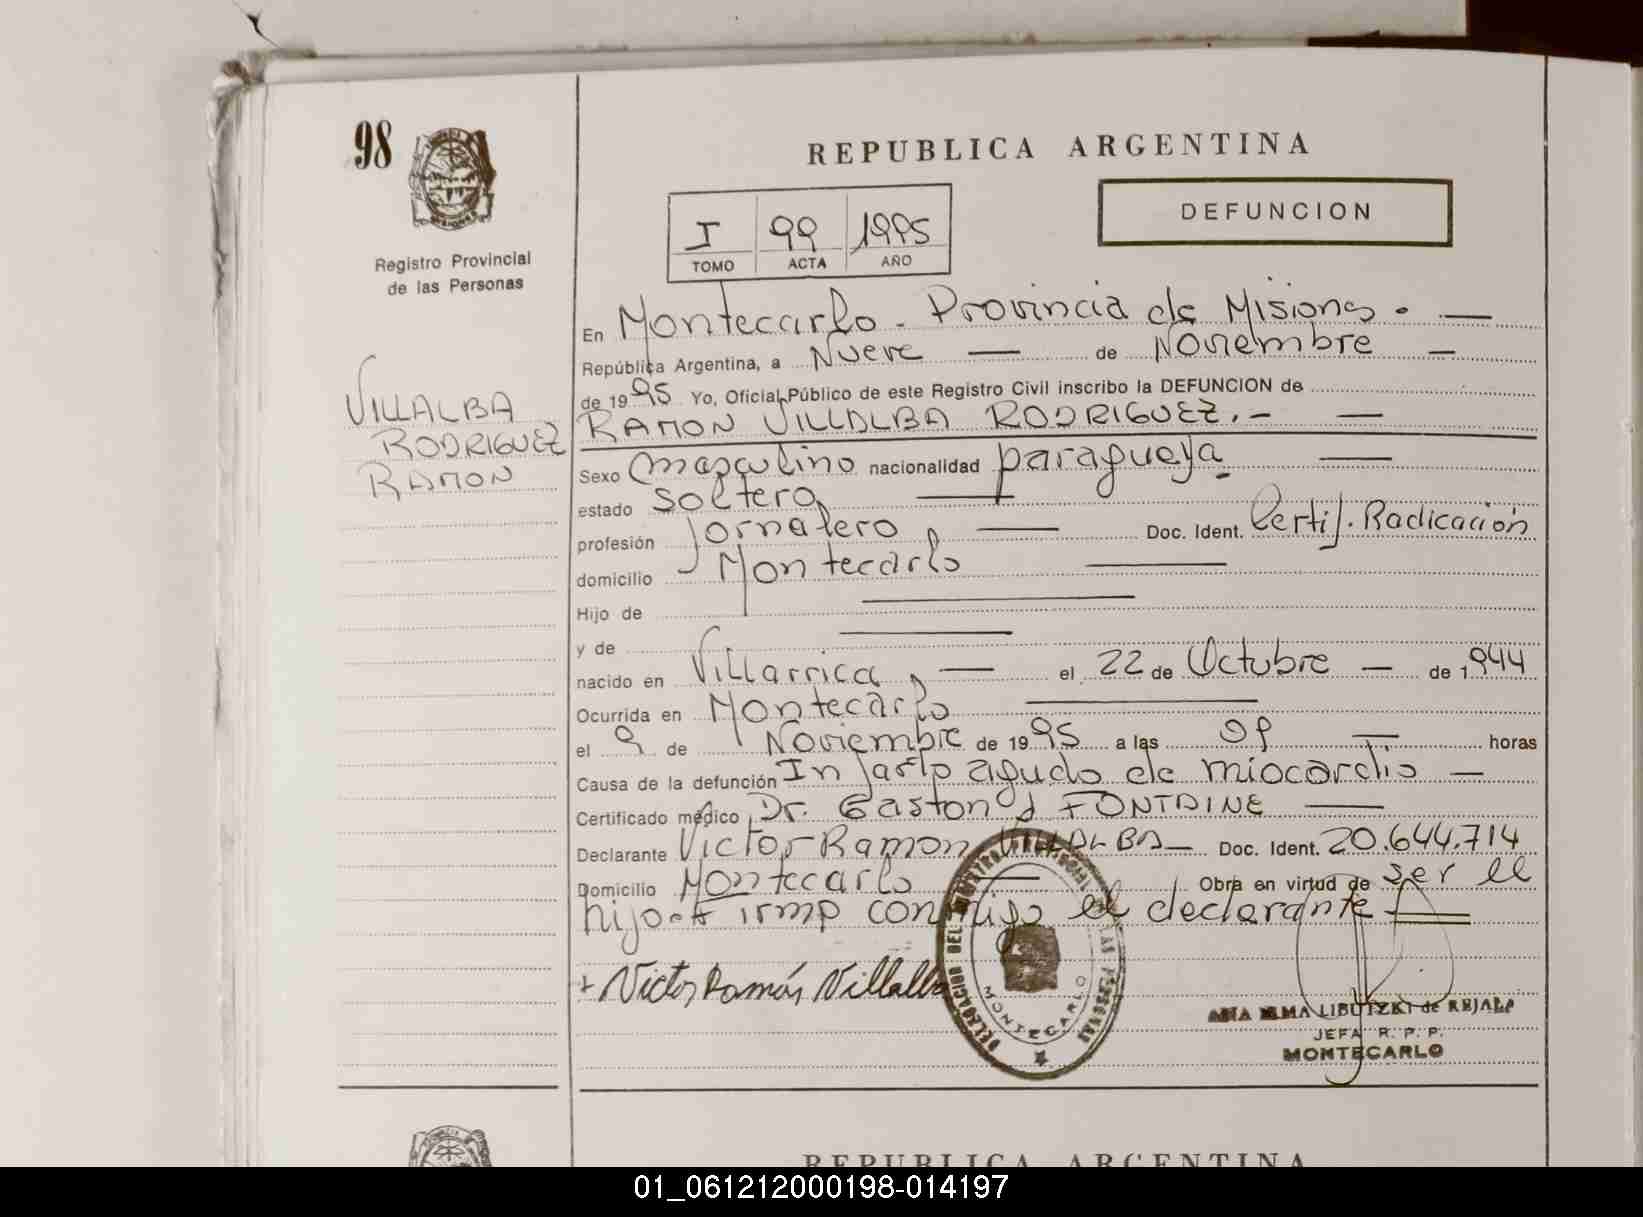 98
REPUBLICA ARGENTINA
DEFUNCION
I 99 1995
TOMO ACTA AÑO
Registro Provincial
de las Personas
VILLALBA
RODRIGUEZ
RAMON
En Montecarlo - Provincia de Misiones. —
República Argentina, a Nueve — de Noviembre —
de 1995 Yo, Oficial Público de este Registro Civil inscribo la DEFUNCION de
RAMON VILLALBA RODRIGUEZ.- —
Sexo masculino nacionalidad paraguaya —
estado soltero —
profesión jornalero — Doc. Ident. Certif. Radicación
domicilio Montecarlo —
Hijo de —
y de —
nacido en Villarrica, — el 22 de Octubre — de 1944
Ocurrida en Montecarlo —
el 9 de Noviembre de 1995 a las 09 — horas
Causa de la defunción Infarto agudo de miocardio —
Certificado médico Dr. Gaston J FONTAINE —
Declarante Victor Ramon VILLALBA — Doc. Ident. 20.644.714
Domicilio Montecarlo — Obra en virtud de ser el
hijo.- Firmo conmigo el declarante —
+ Victor Ramón Villalba
DELEGACION DEL REGISTRO PROVINCIAL DE LAS PERSONAS
MONTECARLO
LIBUTZKI de REJALA
JEFA R. P. P.
MONTECARLO
REPUBLICA ARGENTINA
01_061212000198-014197